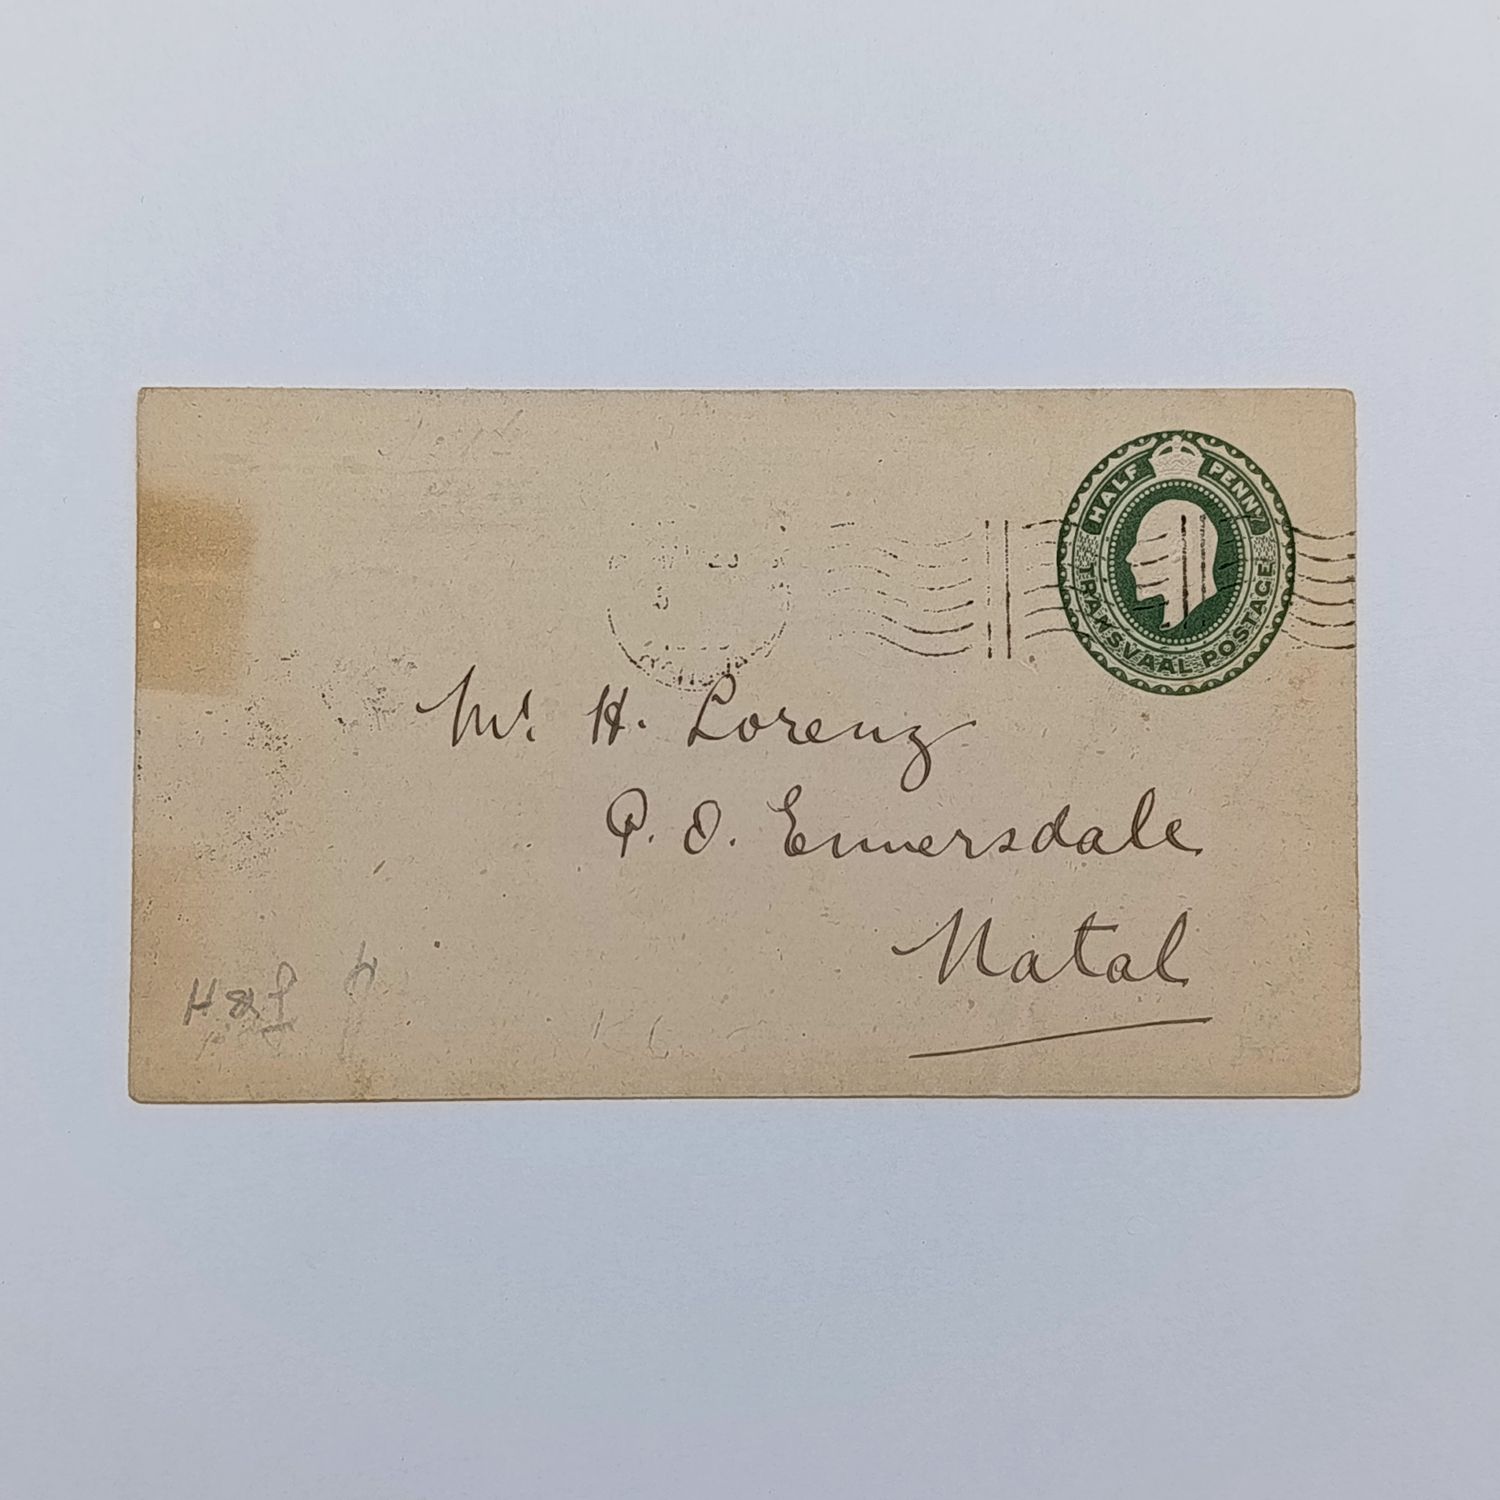 HALF PENNY
TRANSVAAL POSTAGE
Mr. H. Lorenz
P. O. Ennersdale
Natal
H & J